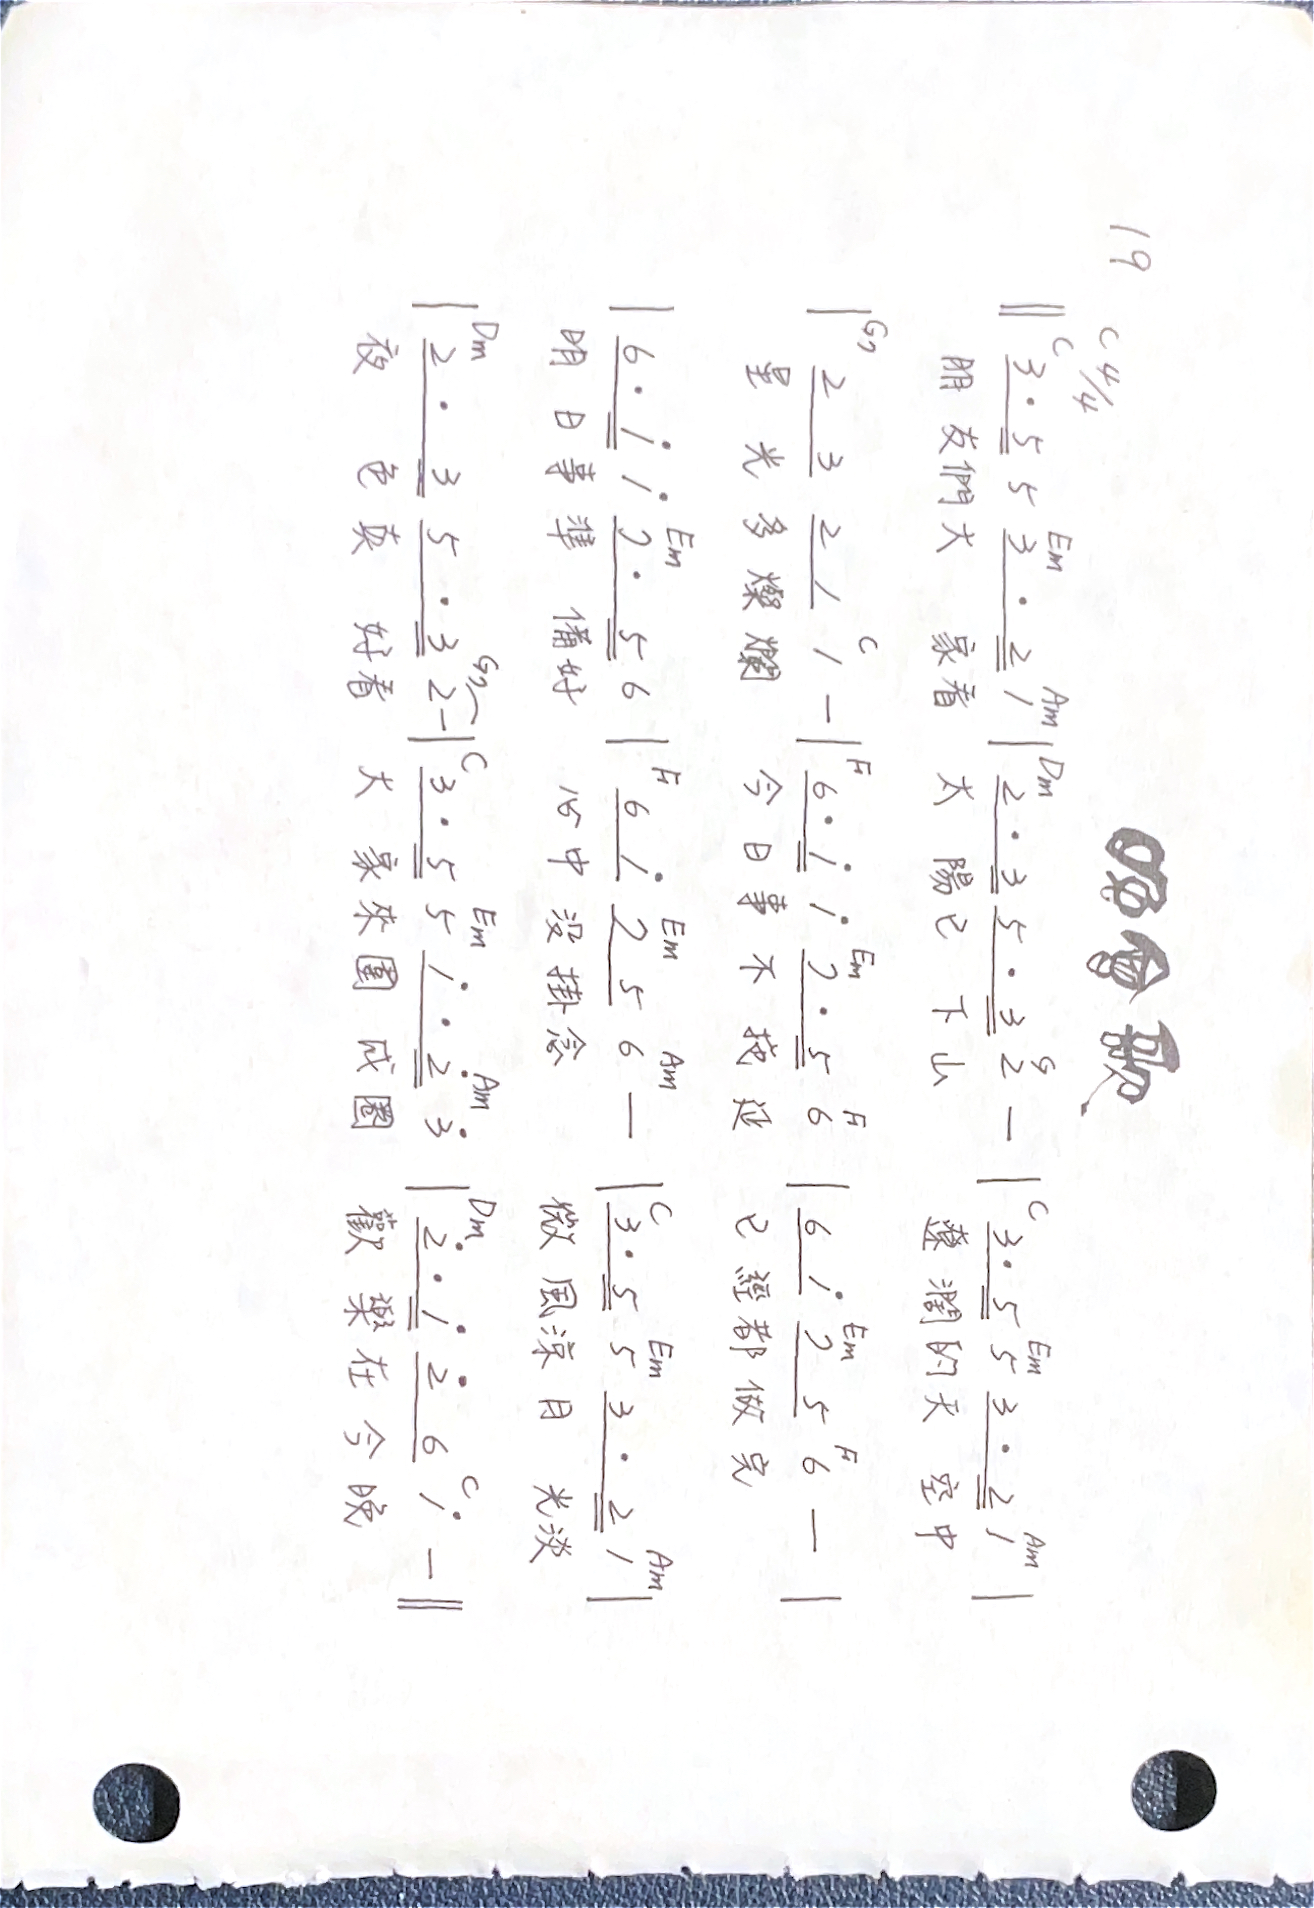 19
晚會歌
C 4/4
C Em Am Dm G C Em Am
‖ 3·5 5 3·2 1 | 2·3 5·3 2 — | 3·5 5 3·2 1 |
朋友們大 家看 太 陽已 下山 遼濶的天 空中
G7 C F Em F Em F
| 2 3 2 1 1 — | 6·i̇ i̇ 7·5 6 | 6 i̇ 7 5 6 — |
星 光多燦爛 今日事不拖延 已經都做完
Em F Em Am C Em Am
| 6·i̇ i̇ 7·5 6 | 6 i̇ 7 5 6 — | 3·5 5 3·2 1 |
明日事準 備好 心中没掛念 微風涼月 光淡
Dm G7 C Em Am Dm C
| 2·3 5·3 2 — | 3·5 5 i̇·2̇ 3̇ | 2̇·i̇ 2̇ 6 i̇ — ‖
夜 色真 好看 大 家來圍 成圈 歡樂在今晚